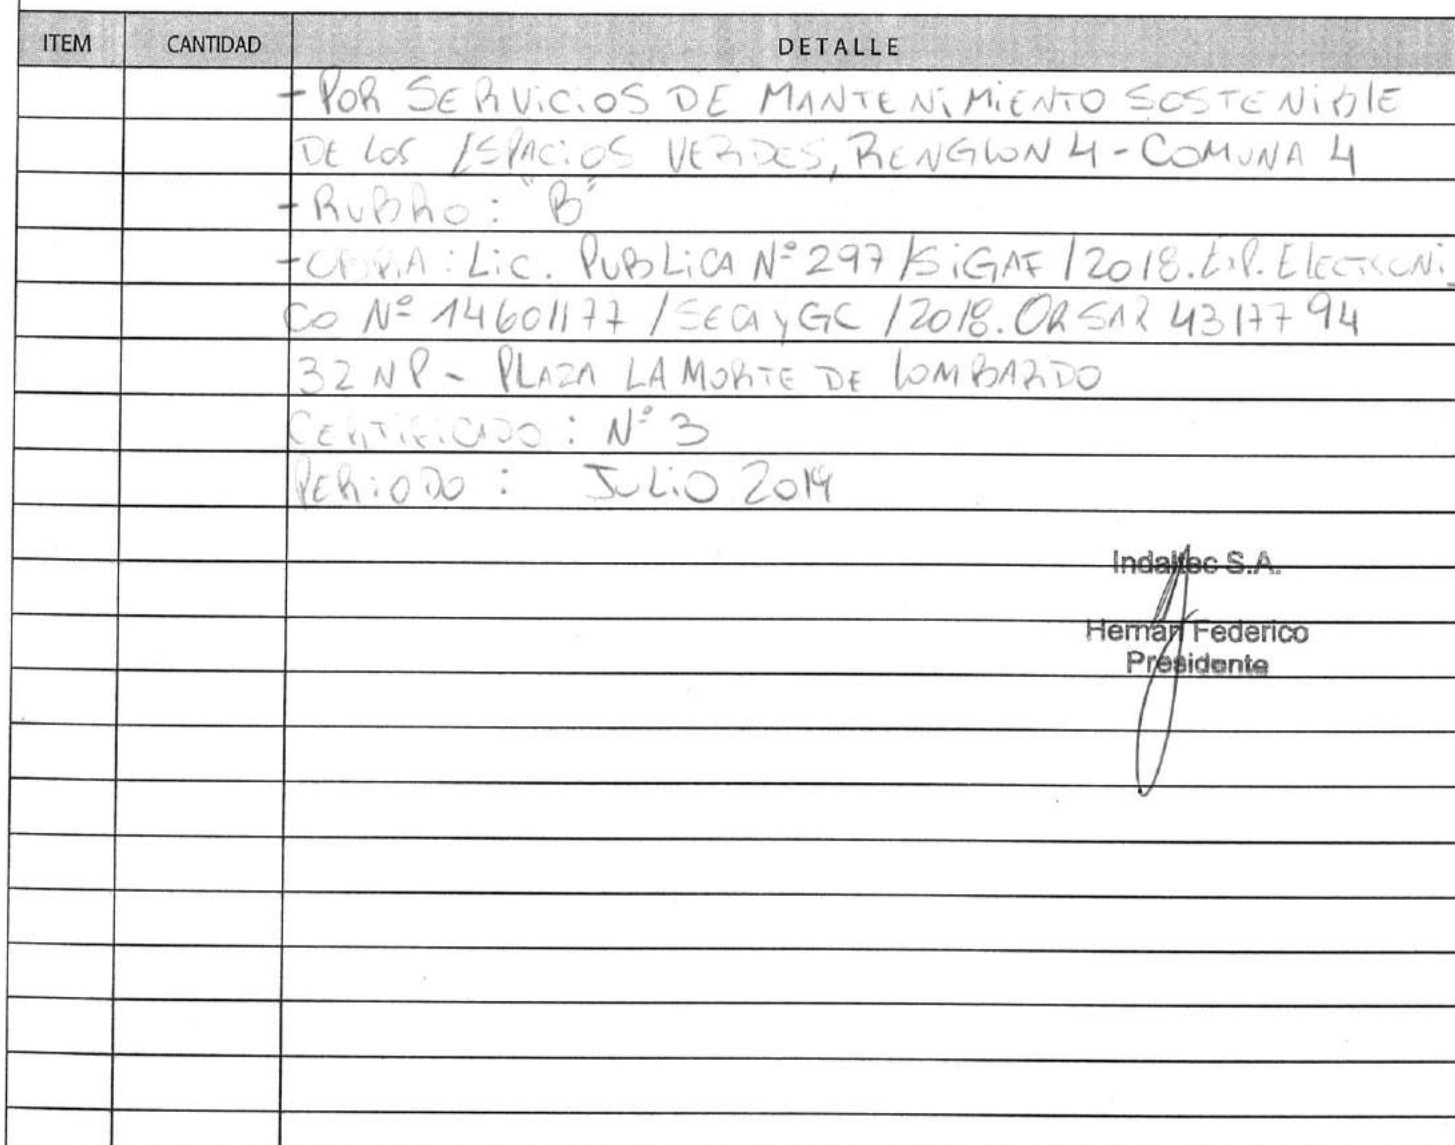 ITEM CANTIDAD DETALLE
- POR SERVICIOS DE MANTENIMIENTO SOSTENIBLE
DE LOS ESPACIOS VERDES, RENGLON 4 - COMUNA 4
- RUBRO: "B"
- OBRA: LIC. PUBLICA Nº 297/SIGAF/2018. EXP. ELECTRONI
CO Nº 14601177/SECAyGC/2018.
32 NP - PLAZA LAMORTE DE LOMBARDO
CERTIFICADO: Nº 3
PERIODO: JULIO 2019
Indaltec S.A.
Hernán Federico
Presidente